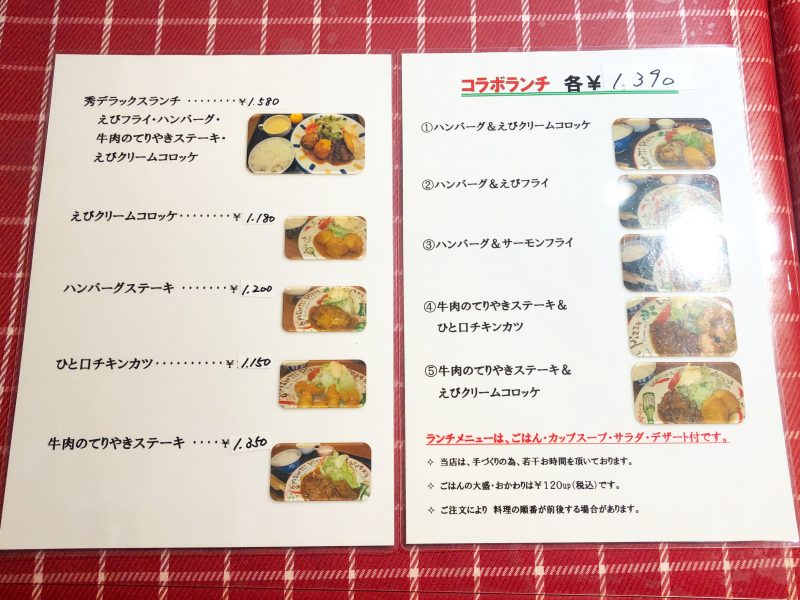 秀デラックスランチ ‥‥‥‥¥1.580
えびフライ・ハンバーグ・
牛肉のてりやきステーキ・
えびクリームコロッケ
えびクリームコロッケ‥‥‥‥¥ 1.180
ハンバーグステーキ ‥‥‥‥¥ 1.200
ひと口チキンカツ‥‥‥‥‥¥ 1.150
牛肉のてりやきステーキ ‥‥¥ 1.350
コラボランチ 各¥ 1.390
①ハンバーグ&えびクリームコロッケ
②ハンバーグ&えびフライ
③ハンバーグ&サーモンフライ
④牛肉のてりやきステーキ&
ひと口チキンカツ
⑤牛肉のてりやきステーキ&
えびクリームコロッケ
ランチメニューは、ごはん・カップスープ・サラダ・デザート付です。
✧ 当店は、手づくりの為、若干お時間を頂いております。
✧ ごはんの大盛・おかわりは¥120up(税込)です。
✧ ご注文により 料理の順番が前後する場合があります。